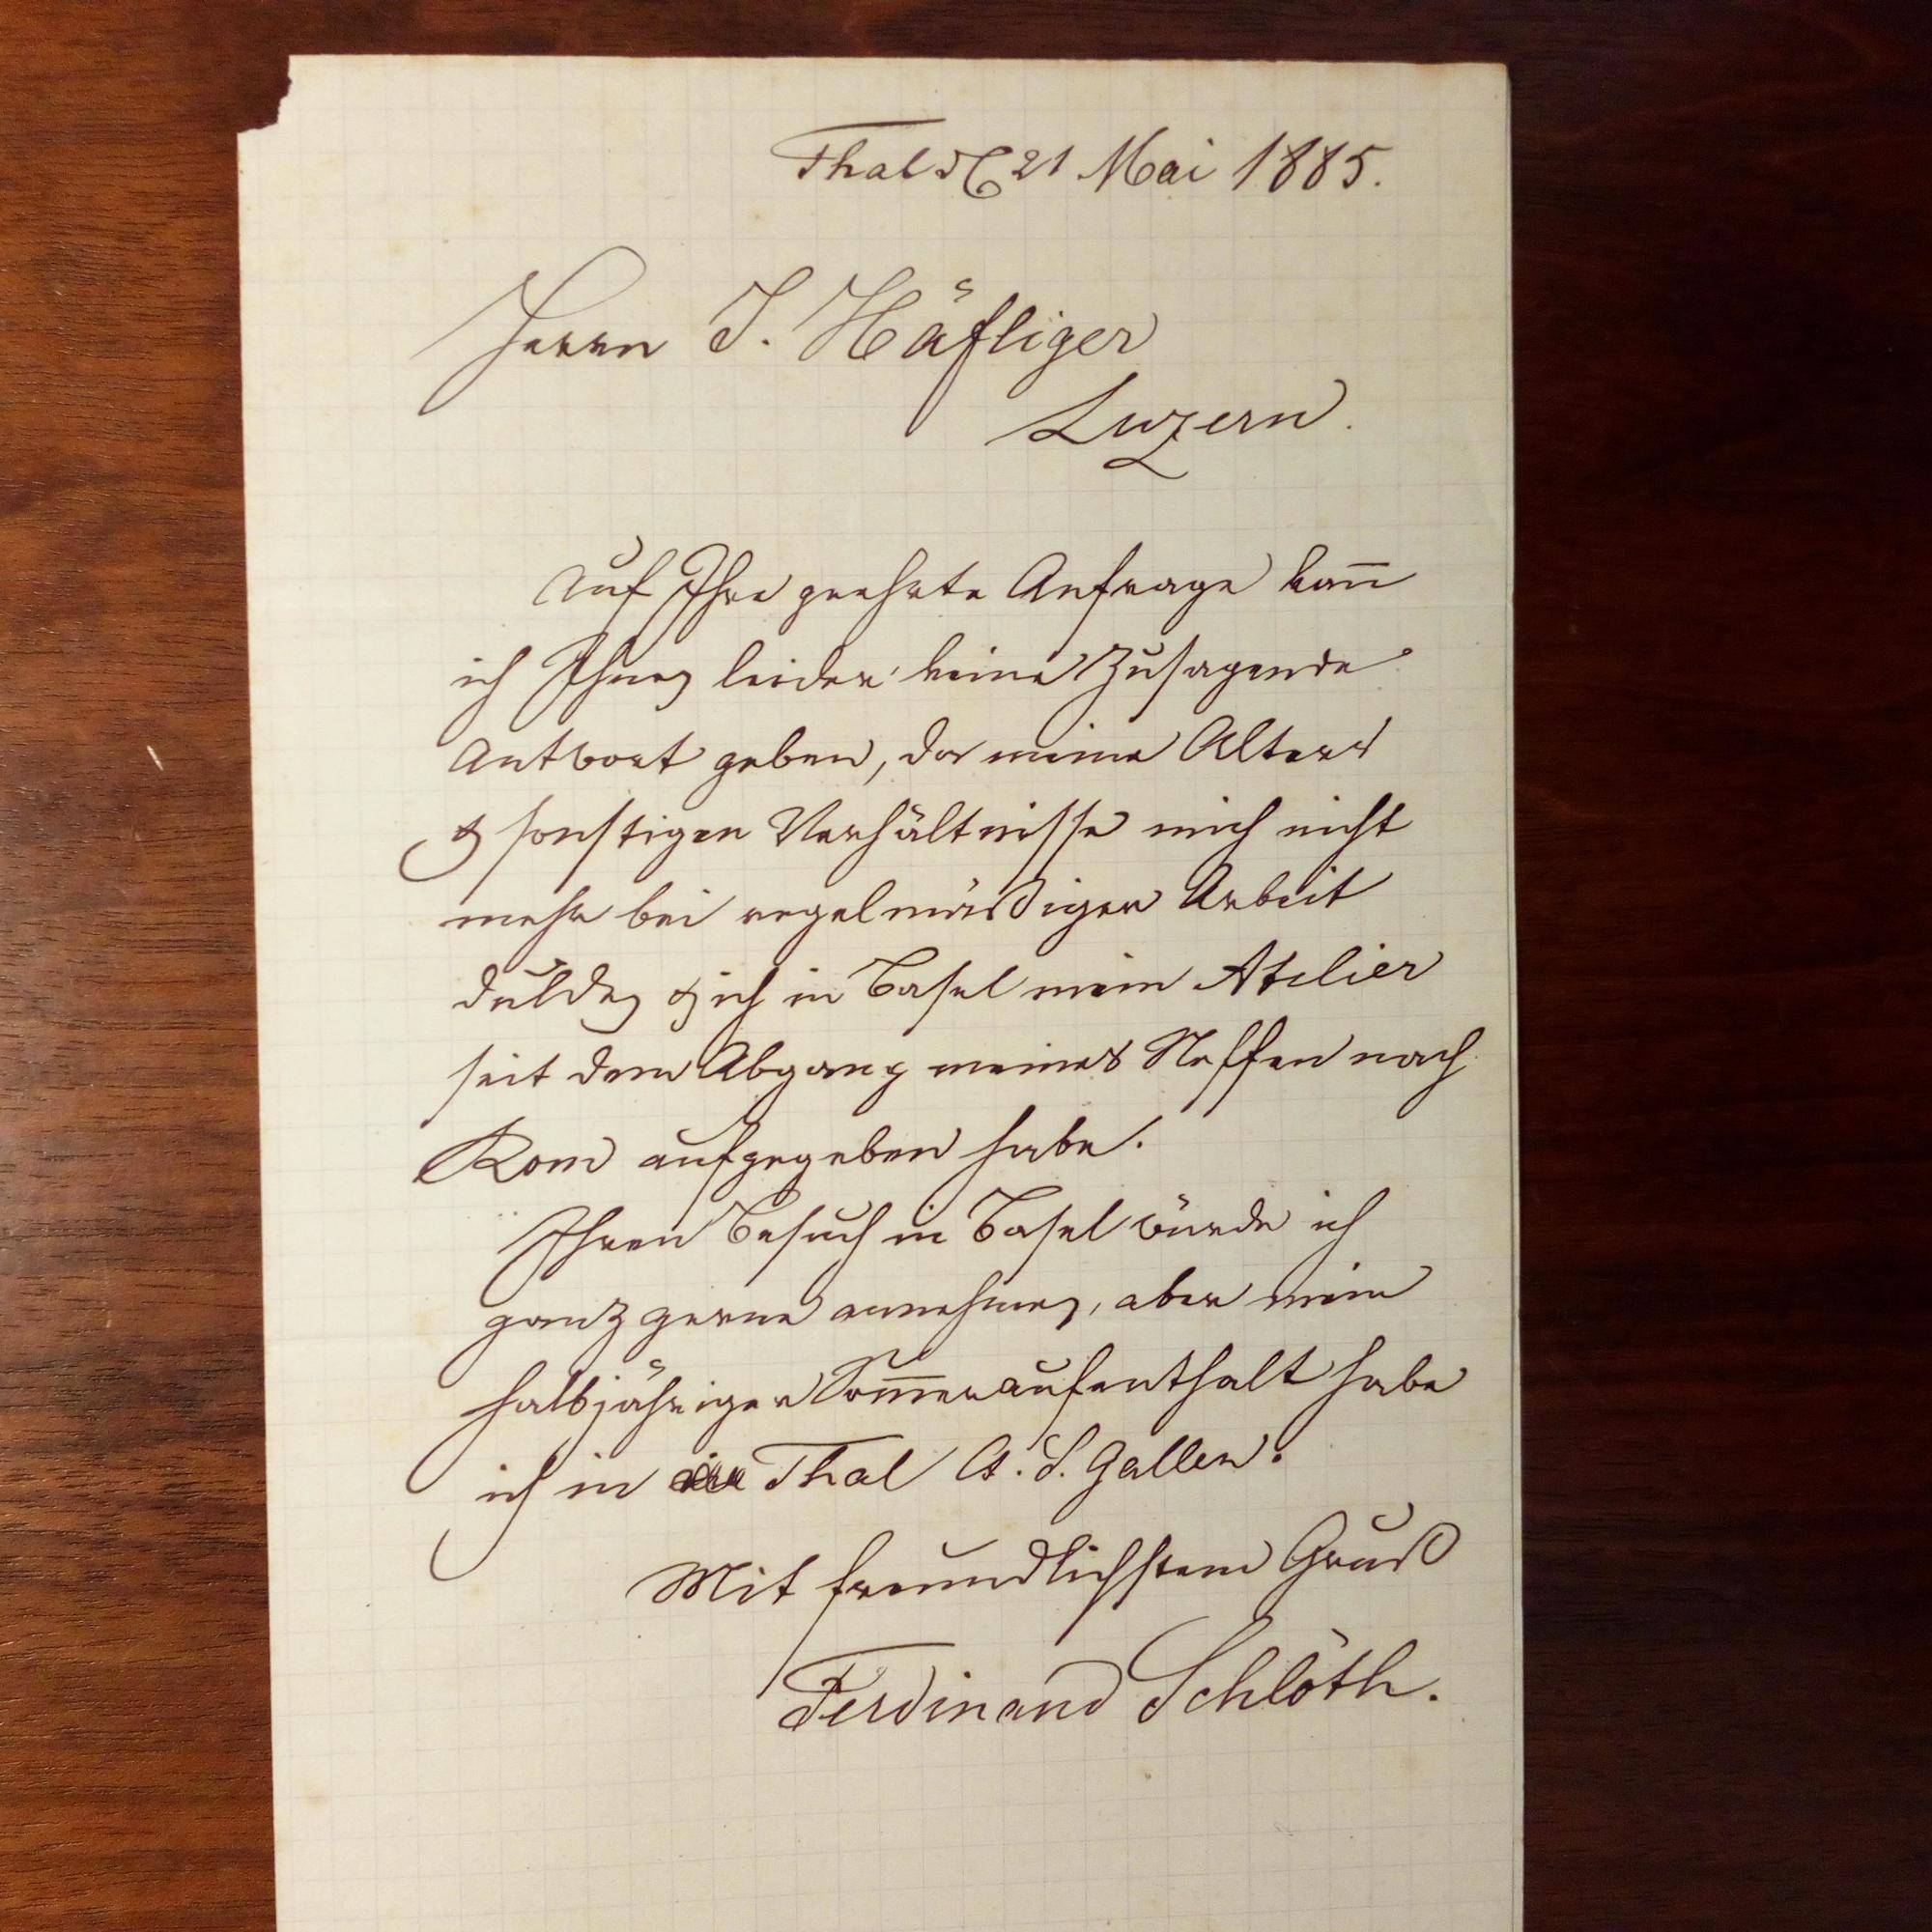 Thal d. 21 Mai 1885.
Herrn J. Häfliger
Luzern.
Auf Ihre geehrte Anfrage kan̅
ich Ihnen leider keine zusagende
Antwort geben, da meine Alters
& sonstigen Verhältnisse mich nicht
mehr bei regelmäßiger Arbeit
dulden & ich in Basel mein Atelier
seit dem Abgang meines Neffen nach
Rom aufgegeben habe.
Ihren Besuch in Basel würde ich
ganz gerne annehmen, aber mein
halbjähriger Som̅eraufenthalt habe
ich in Thal Ct. S. Gallen.
Mit freundlichstem Gruß
Ferdinand Schlöth.